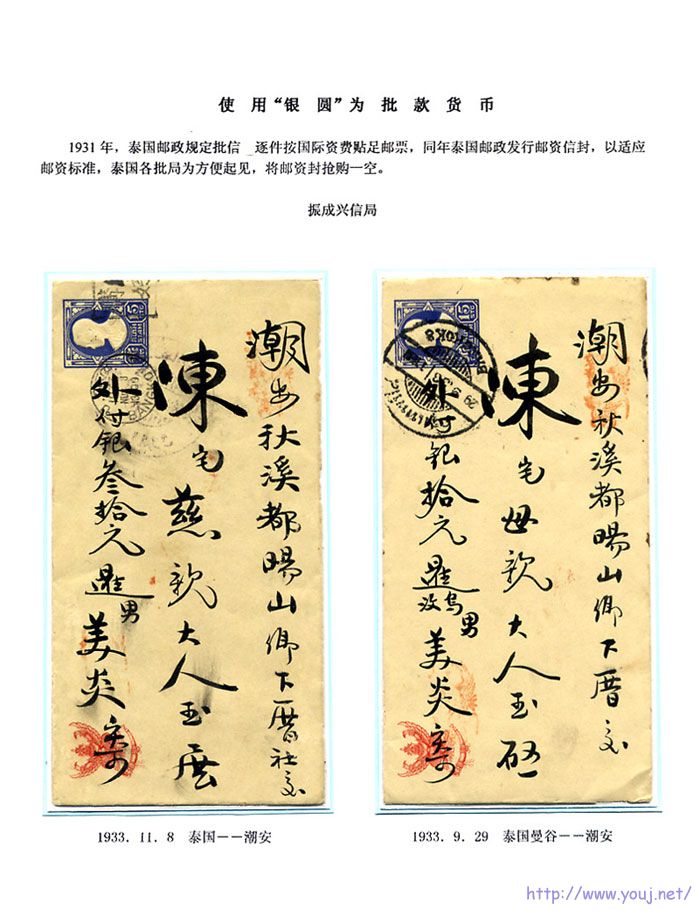 使用“银圆”为批款货币
1931年，泰国邮政规定批信 逐件按国际资费贴足邮票，同年泰国邮政发行邮资信封，以适应
邮资标准，泰国各批局为方便起见，将邮资封抢购一空。
振成兴信局
潮安秋溪都暘山鄉下厝社交
陳宅慈親大人玉展
外付銀叁拾元 男美炎寄
15
潮安秋溪都暘山鄉下厝交
陳宅母親大人玉啟
外付銀拾元 男美炎寄
15
BANGKOK 8
1933. 11. 8 泰国——潮安
1933. 9. 29 泰国曼谷——潮安
http://www.youj.net/